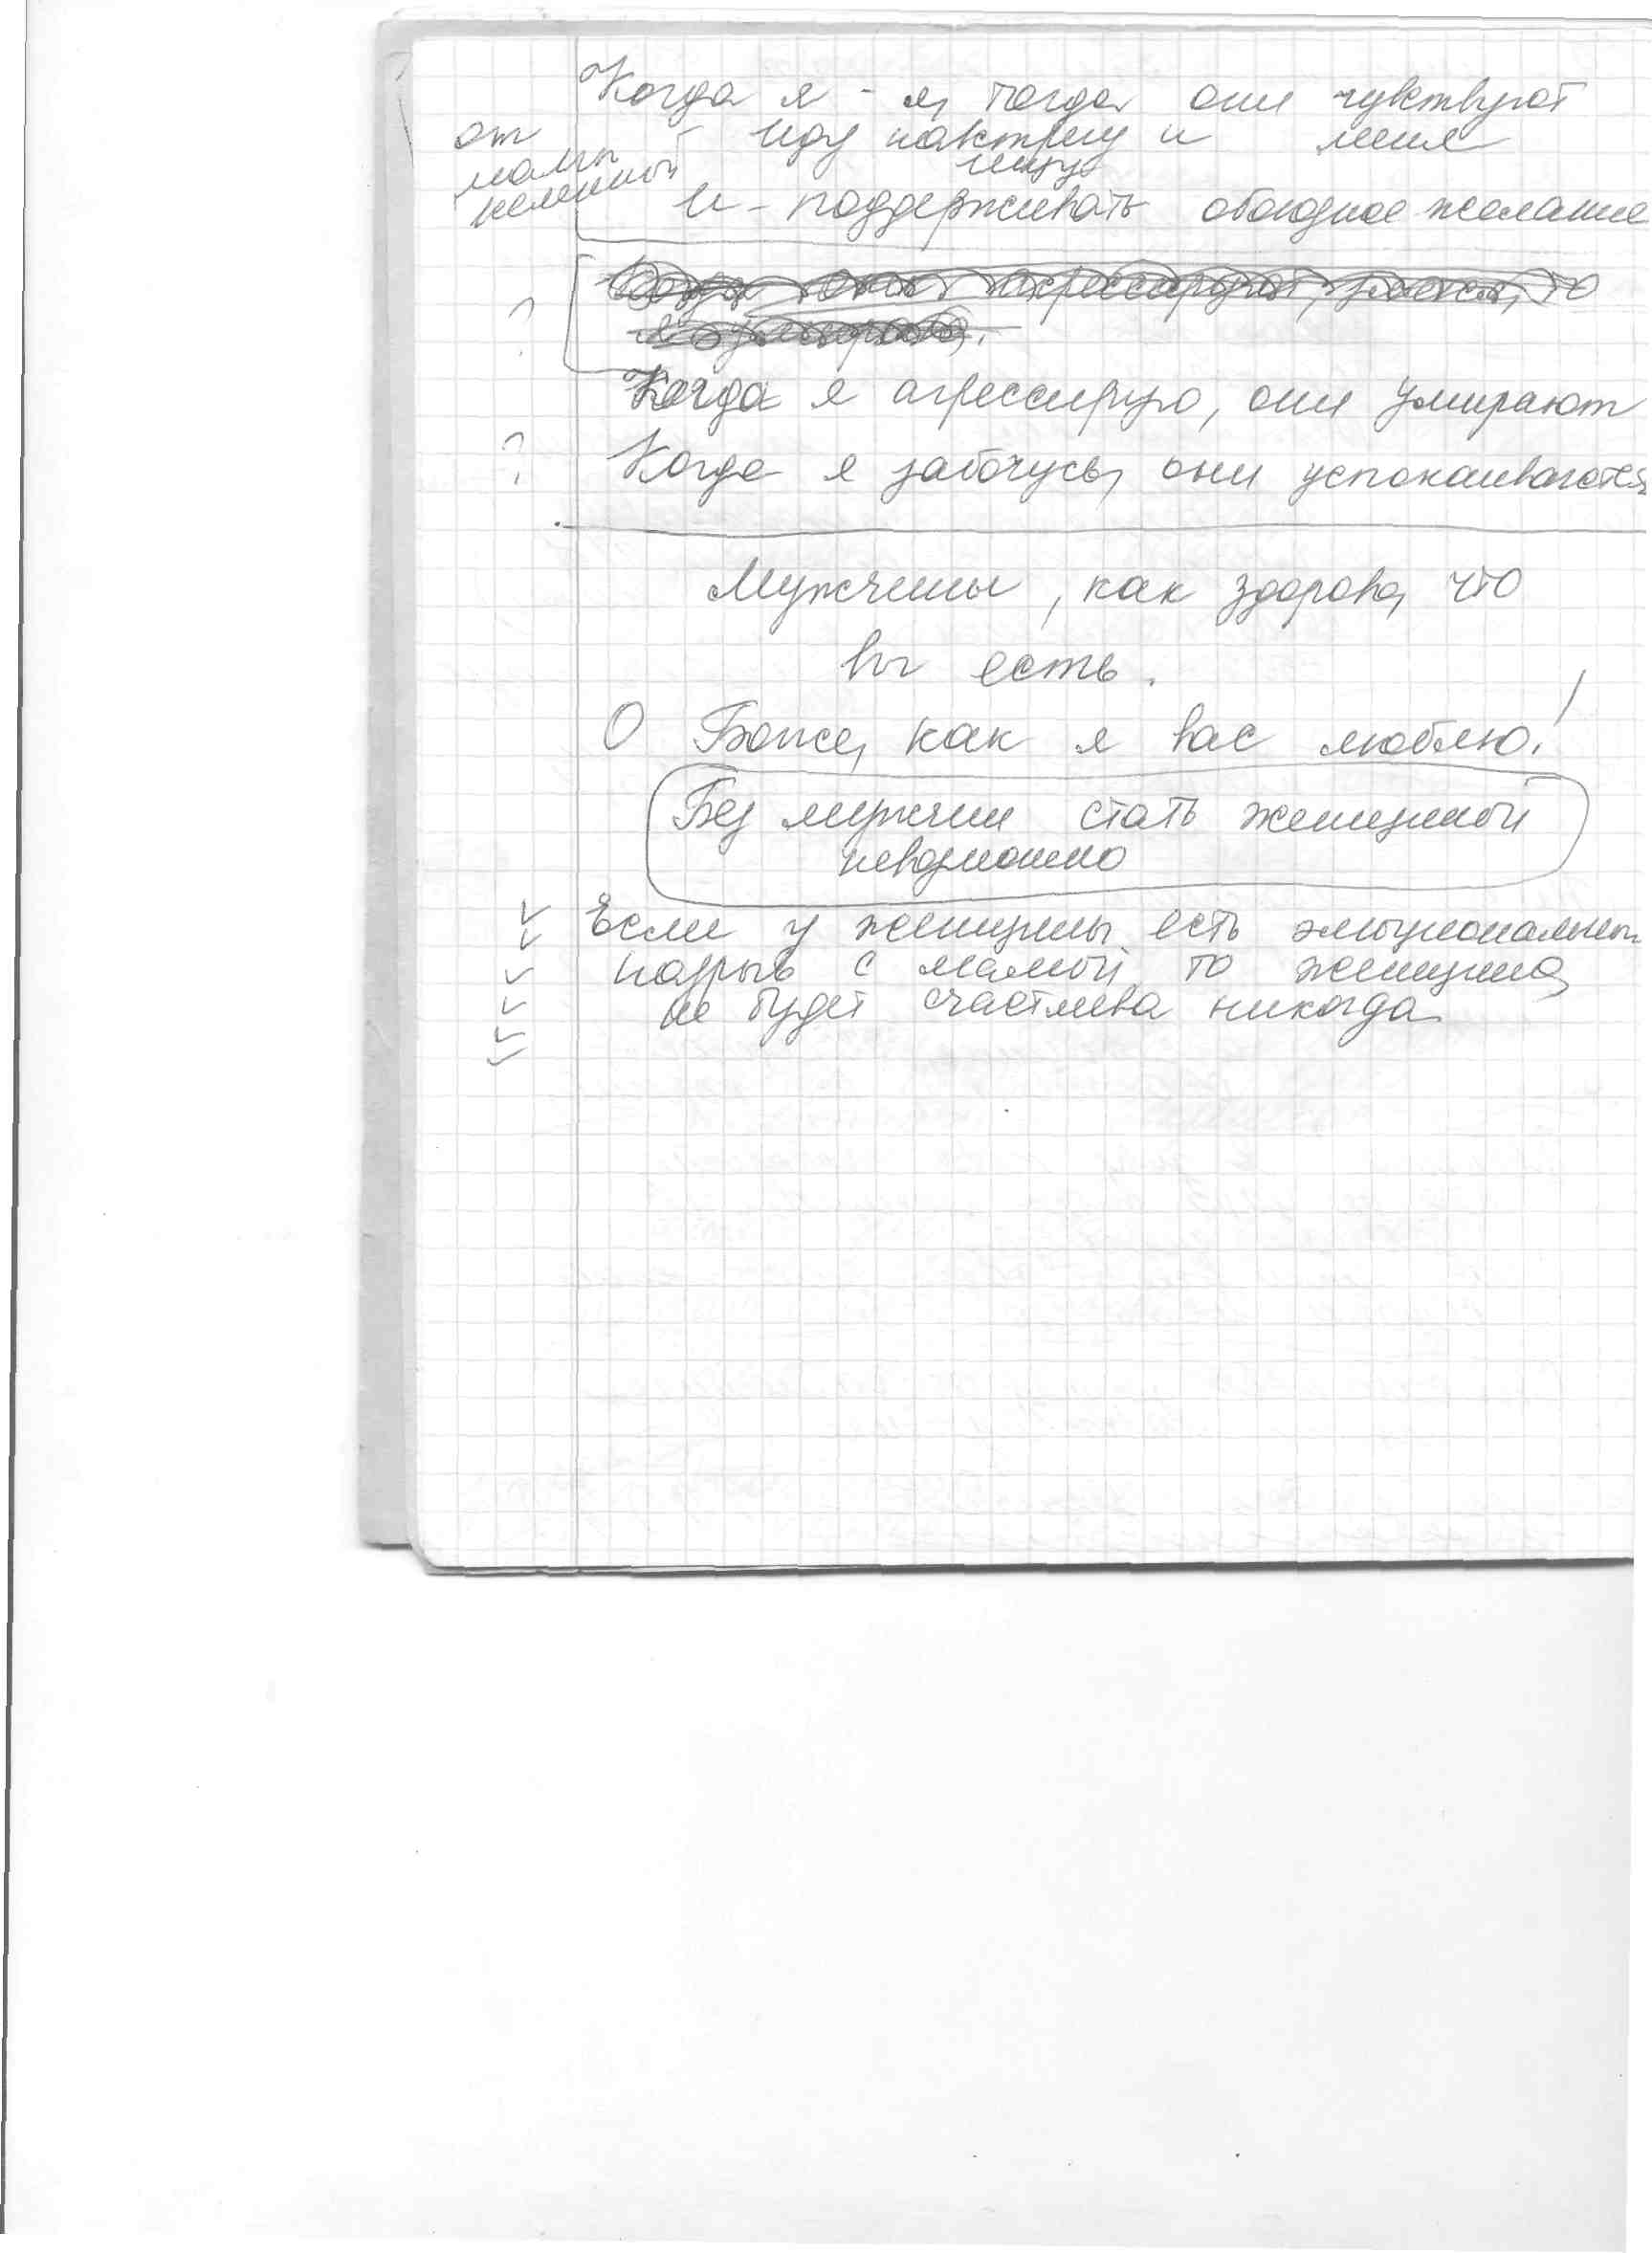 Когда я - я, тогда они чувствуют
от
мамы
иду навстречу и меня
ищу
и - поддерживать обоюдное желание
?
то
Когда я агрессирую, они умирают
? Когда я забочусь, они успокаиваются
Мужчины, как здорово, что
вы есть.
О Боже, как я вас люблю!
Без мужчин стать женщиной
невозможно
Если у женщины есть эмоциональный
разрыв с мамой, то женщина
не будет счастлива никогда